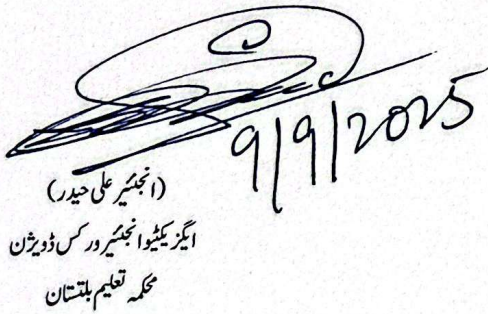 9/9/2025
(انجئیر علی حیدر)
ایگزیکٹیو انجئیر ورکس ڈویژن
محکمہ تعلیم بلتستان